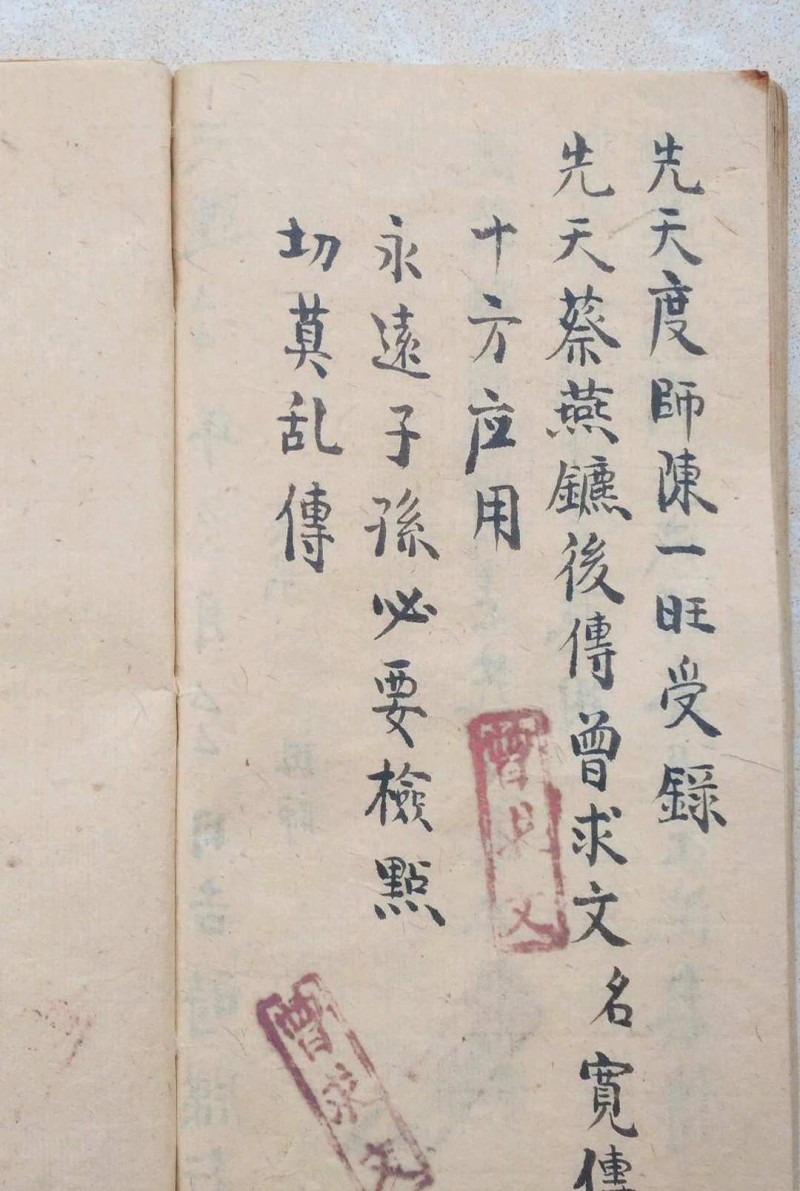 先天度師陳一旺受錄
先天蔡燕鑣後傳曾求文名寬傳
十方应用
永遠子孫必要檢點
切莫乱傳
曾求文
曾求文